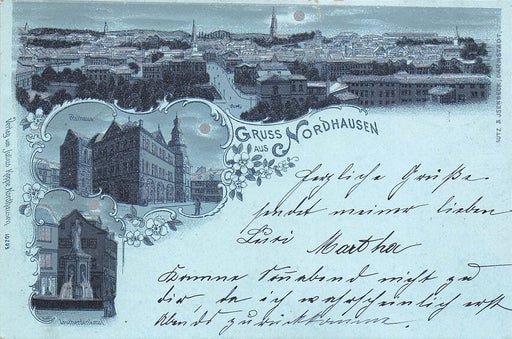 Gruss
aus
Nordhausen
Rathaus
Lutherdenkmal
Verlag von Julius Koppe Nordhausen.
10259
LUTZ & ISENBECK, DARMSTADT.
Herzliche Grüße
sendet meiner lieben
Lusi Martha
Komme Sonnabend nicht zu
dir, da ich wahrscheinlich erst
Abends zurückkomme.